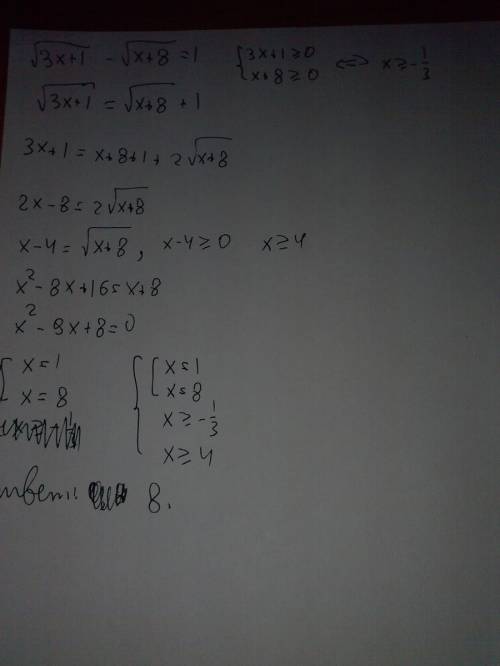 √(3x+1) − √(x+8) = 1 { 3x+1 ≥ 0 x+8 ≥ 0 <=> x ≥ −1/3
√(3x+1) = √(x+8) + 1
3x+1 = x+8+1+2√(x+8)
2x−8 = 2√(x+8)
x−4 = √(x+8), x−4 ≥ 0 x ≥ 4
x²−8x+16 = x+8
x²−9x+8=0
[ x=1 { [ x=1
x=8 x=8
x ≥ −1/3
x ≥ 4
твет: 8.